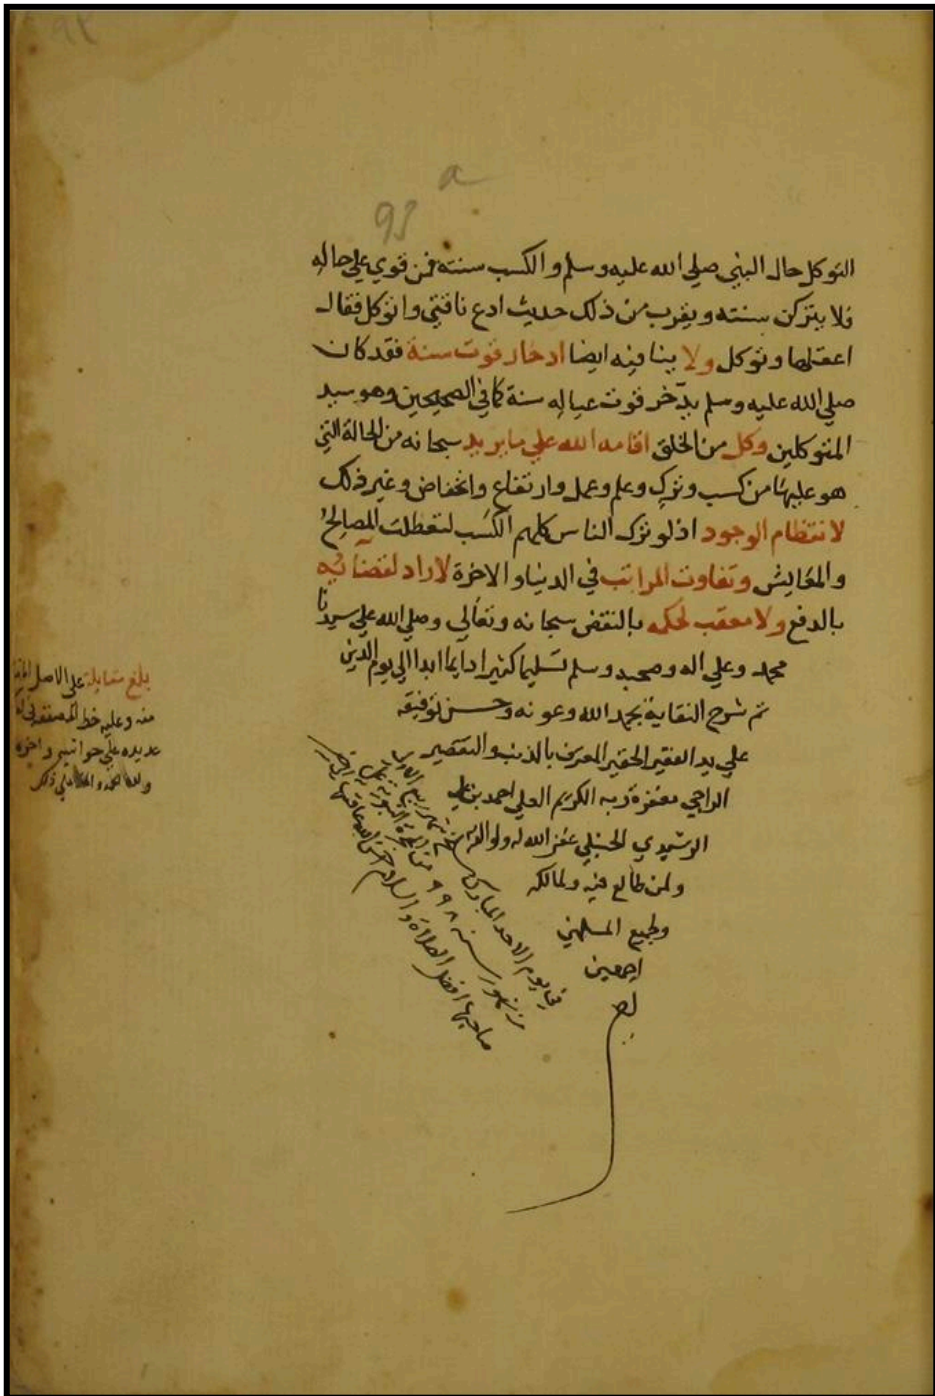 التوكل حال النبي صلي الله عليه وسلم والكسب سنته فمن قوي علي حاله
فلا يتركن سنته ويقرب من ذلك حديث ادع ناقتي واتوكل فقال
اعقلها وتوكل ولا ينافيه ايضا ادخار قوت سنة فقد كان
صلي الله عليه وسلم يدّخر قوت عياله سنة كما في الصحيحين وهو سيد
المتوكلين وكل من الخلق اقامه الله علي ما يريد سبحانه من الحالة التي
هو عليها من كسب وترك وعلم وعمل وارتفاع وانخفاض وغير ذلك
لانتظام الوجود اذ لو ترك الناس كلهم الكسب لتعطلت المصالح
والمعايش وتفاوت المراتب في الدنيا والاخرة لا راد لقضائه
بالدفع ولا معقب لحكمه بالنقض سبحانه وتعالي وصلي الله علي سيدنا
محمد وعلي اله وصحبه وسلم تسليما كثيرا دايما ابدا الي يوم الدين
تم شرح النقاية بحمد الله وعونه وحسن توفيقه
علي يد الفقير الحقير المعترف بالذنب والتقصير
الراجي مغفرة ربه الكريم العلي احمد بن علي
الرشيدي الحنبلي غفر الله له ولوالديه
ولمن طالع فيه ولمالكه
ولجميع المسلمين
اجمعين
في يوم الاحد المبارك شهر ربيع
من شهور سنه ٩٩٨ من الهجرة النبوية علي
صاحبها افضل الصلاة والسلام
بلغ مقابلة علي الاصل
منه وعليه خط المصنف في
عديده علي حواشيه واخره
ولله الحمد علي ذلك
93